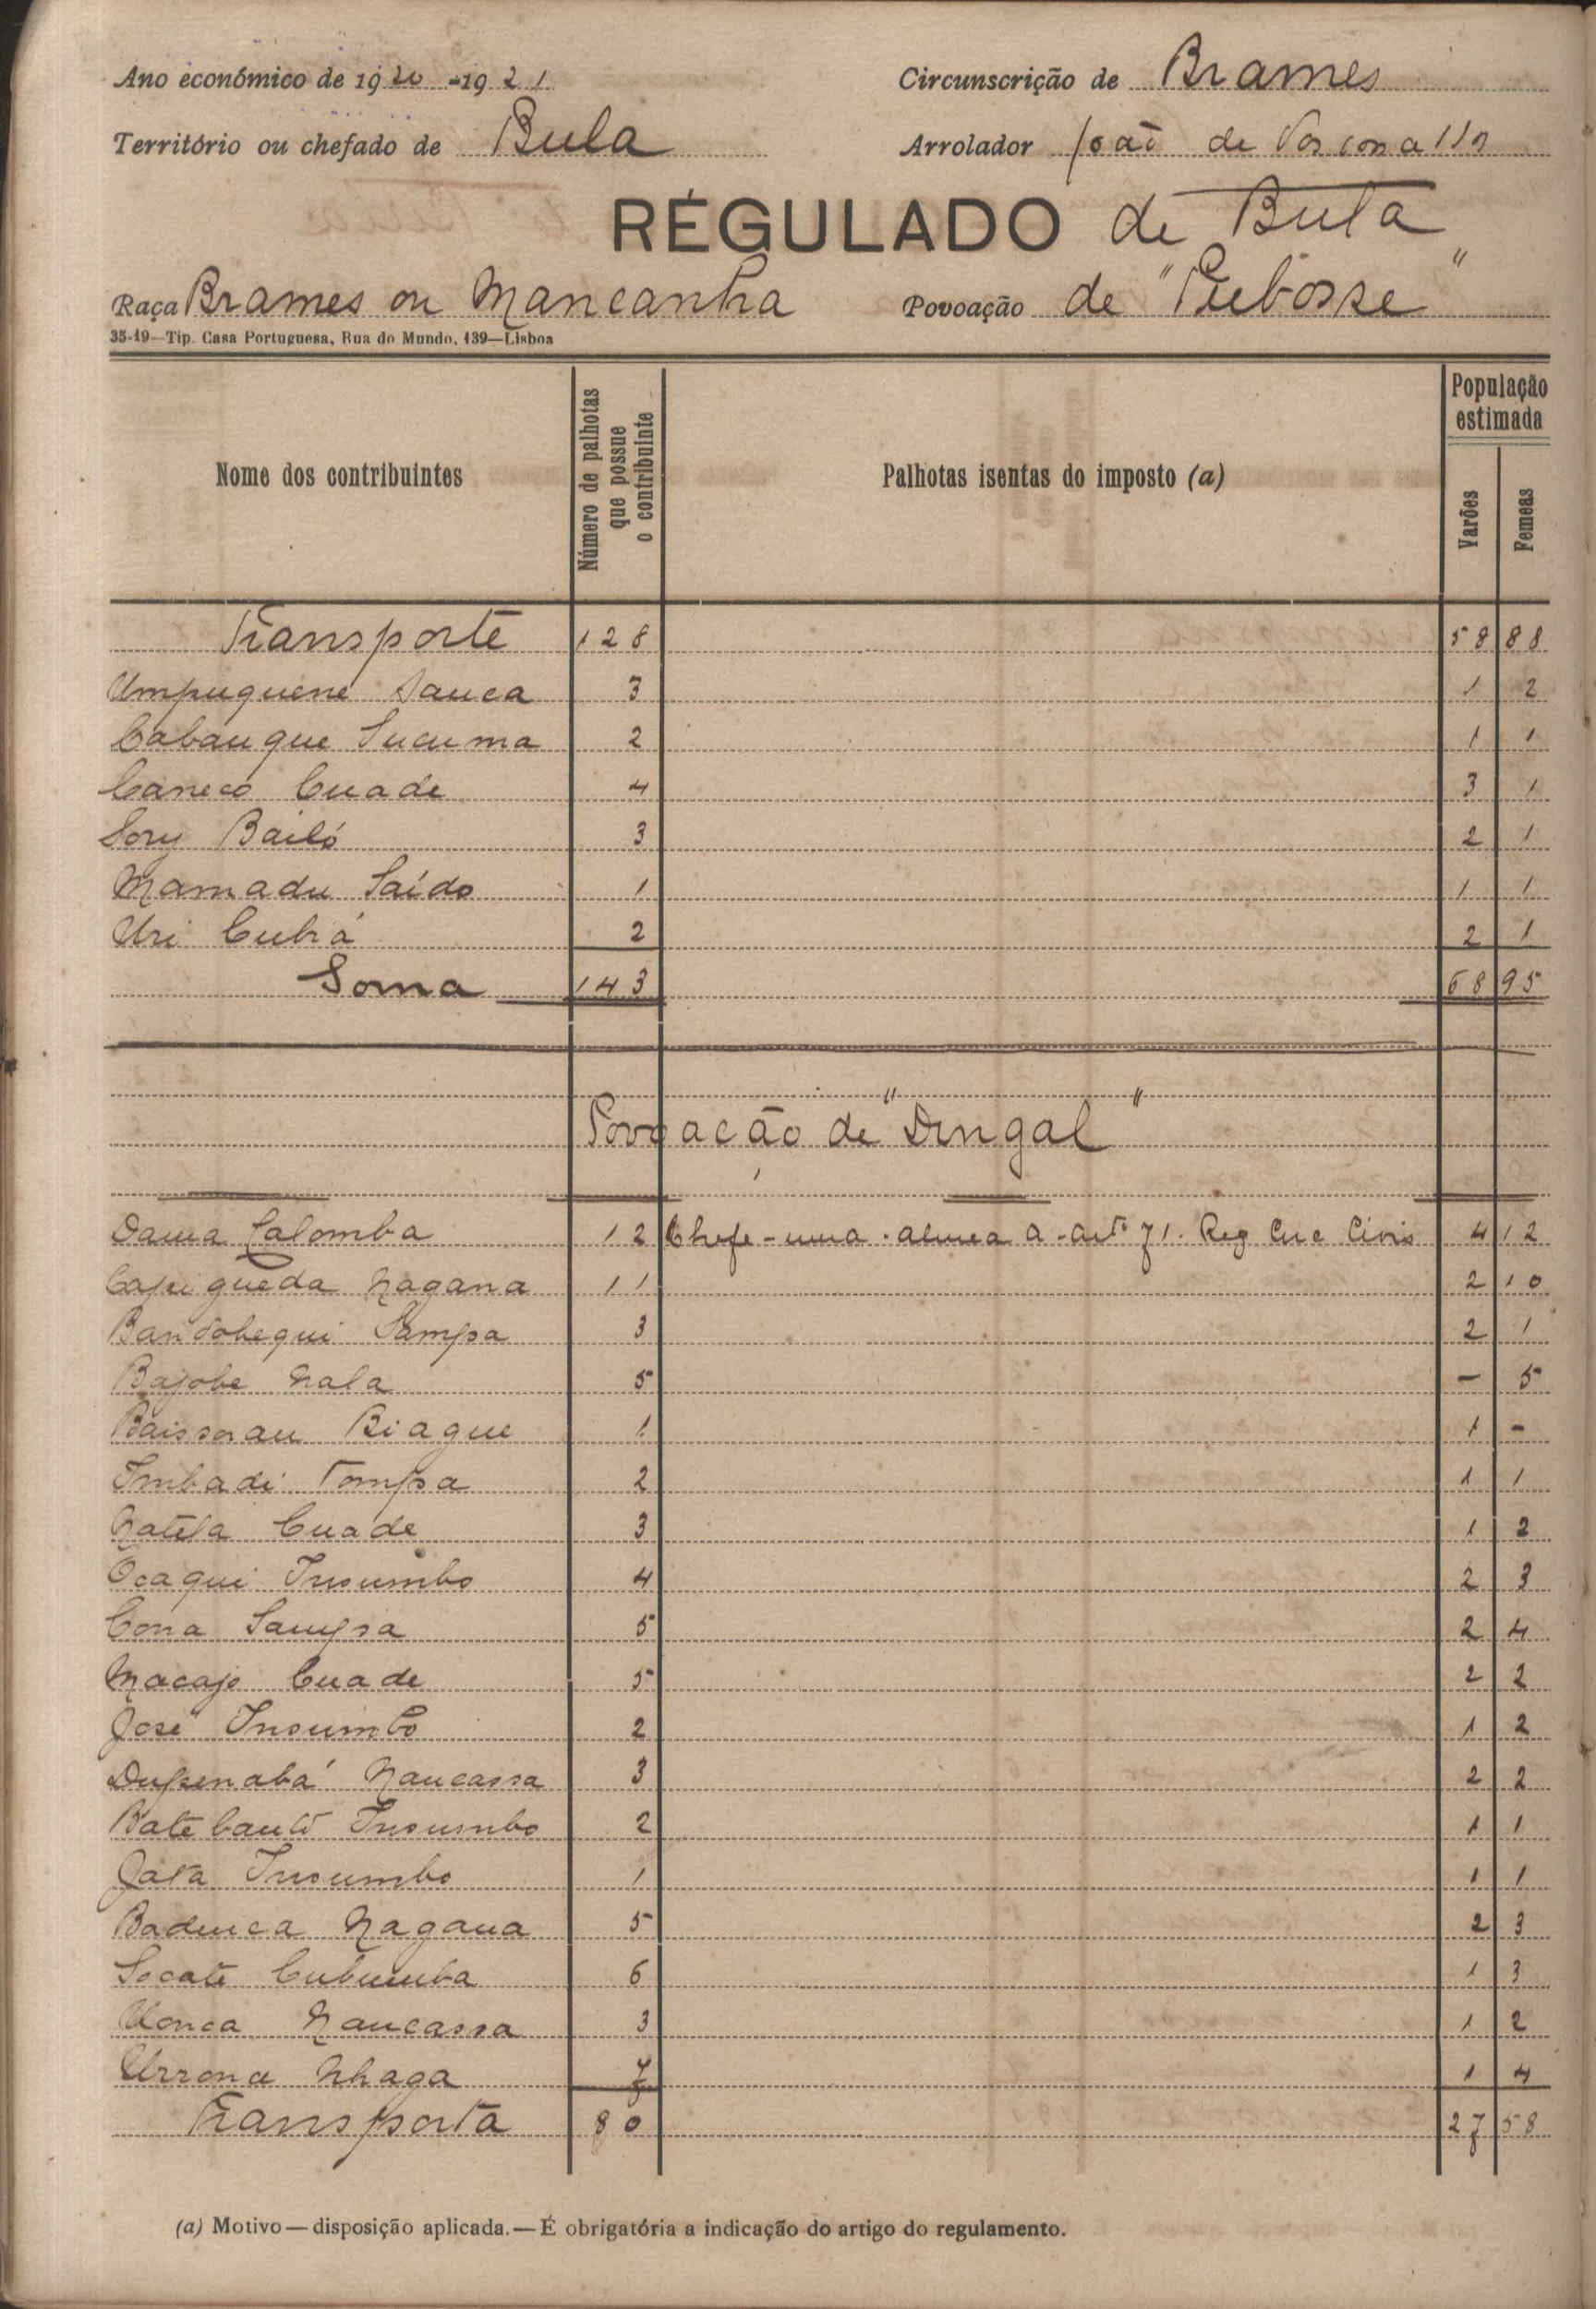 Ano económico de 1920-1921 Circunscrição de Brames
Território ou chefado de Bula Arrolador João de Vasconcellos
RÉGULADO de Bula
Raça Brames ou Mancanha Povoação de "Pubosse"
35-19—Tip. Casa Portuguesa, Rua do Mundo, 139—Lisboa
Nome dos contribuintes
Número de palhotas que possue o contribuinte
Palhotas isentas do imposto (a)
População estimada
Varões
Femeas
Transporte 128 58 88
Umpuguene Sauca 3 1 2
Cabauque Sucuma 2 1 1
Caneco Cuade 4 3 1
Sory Bailó 3 2 1
Mamadu Saído 1 1 1
Uri Cubrá 2 2 1
Soma 143 68 95
Povoação de "Dungal"
Dama Calomba 12 Chefe - uma - alinea a - artº 71. Reg Circ Civis 4 12
Capigueda Nagana 11 2 10
Bandobequi Sampa 3 2 1
Bajobe Nala 5 - 5
Baissorau Biague 1 1 -
Imbadi Tompa 2 1 1
Natela Cuade 3 1 2
Ocaqui Insumbo 4 2 3
Cona Sampa 5 2 4
Macajo Cuade 5 2 2
José Insumbo 2 1 2
Dupenabá Naucassa 3 2 2
Batebautó Insumbo 2 1 1
Jata Insumbo 1 1 1
Baduca Nagana 5 2 3
Socate Cubumba 6 1 3
Uonca Naucassa 3 1 2
Urrona Nhaga 7 1 4
Transporta 80 27 58
(a) Motivo—disposição aplicada.—É obrigatória a indicação do artigo do regulamento.